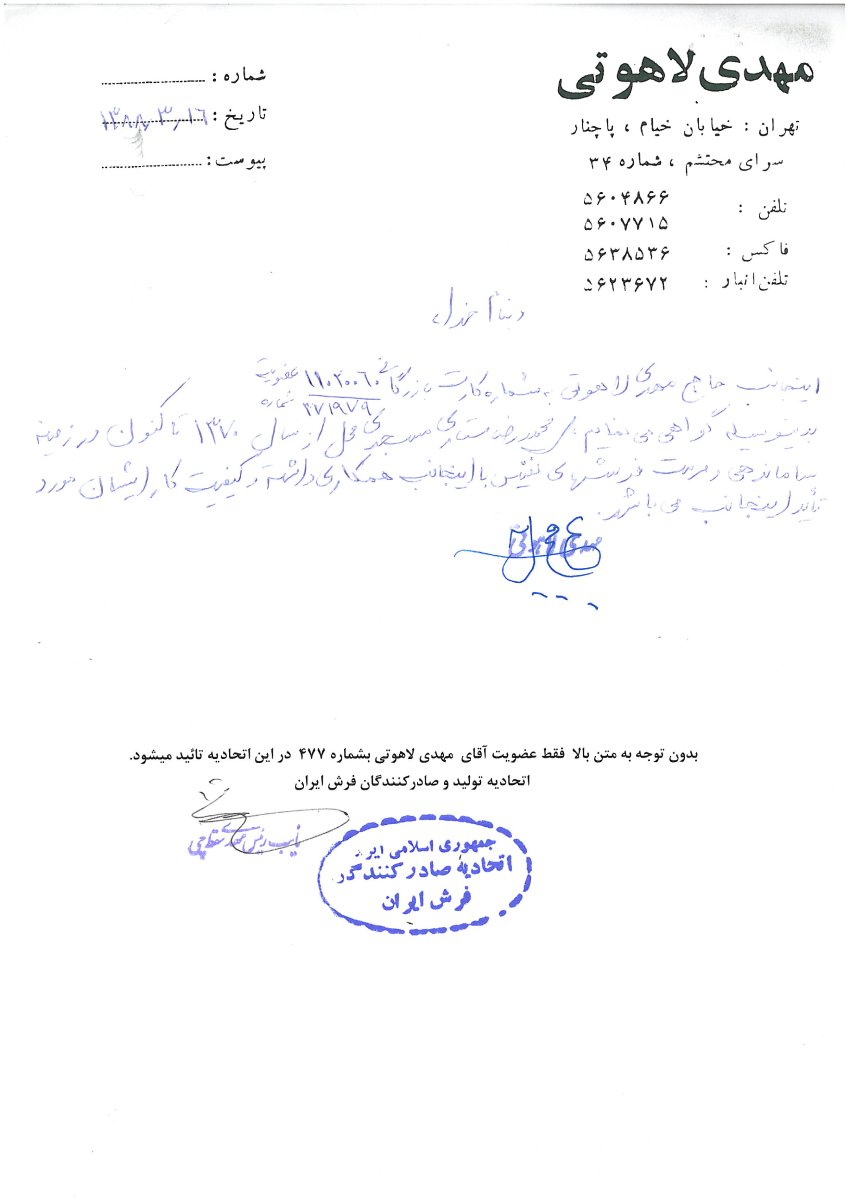 مهدی لاهوتی
تهران : خیابان خیام ، پاچنار
سرای محتشم ، شماره ۳۴
تلفن : ۵۶۰۴۸۶۶
۵۶۰۷۷۱۵
فاکس : ۵۶۳۸۵۳۶
تلفن انبار : ۵۶۲۳۶۷۲
شماره :
تاریخ : ۱۳۸۸,۳,۱۶
پیوست :
اینجانب حاج مهدی لاهوتی به شماره کارت بازرگانی ۱۱۰۲۰۰۶۰ عضویت
شماره ۲۷۱۹۷۹
بدینوسیله گواهی می نمایم محمدرضا مسجدی از سال ۱۳۷۰ تا کنون در زمینه
ساماندهی و مرمت فرشهای نفیس با اینجانب همکاری داشته و کیفیت کار ایشان مورد
تأیید اینجانب می باشد.
مهدی لاهوتی
بدون توجه به متن بالا فقط عضویت آقای مهدی لاهوتی بشماره ۴۷۷ در این اتحادیه تائید میشود.
اتحادیه تولید و صادرکنندگان فرش ایران
نایب رئیس
جمهوری اسلامی ایران
اتحادیه صادرکنندگان
فرش ایران